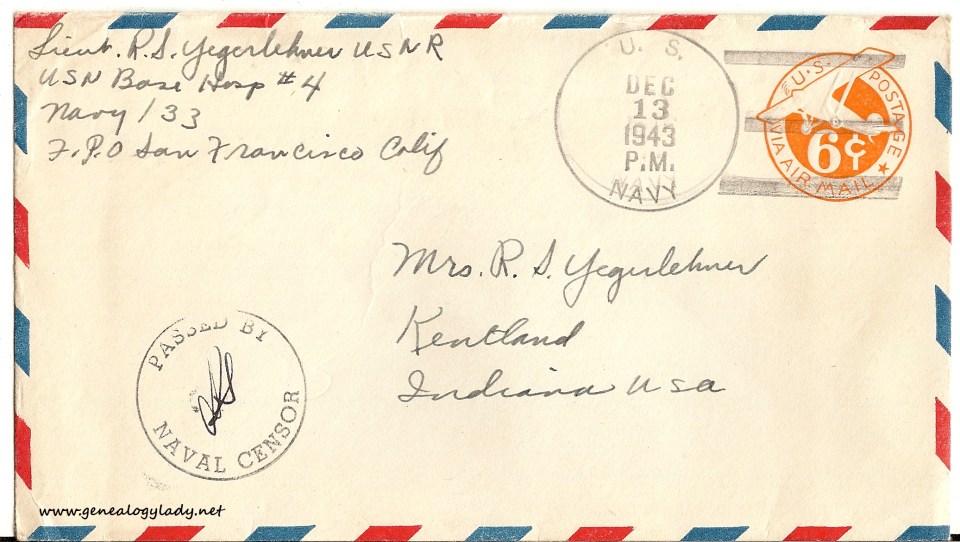 Lieut. R.S. Yegerlehner USNR
USN Base Hosp #4
Navy 133
F.P.O San Francisco Calif
U. S.
DEC
13
1943
P.M.
NAVY
U.S. POSTAGE
6¢
VIA AIR MAIL
Mrs. R. S. Yegerlehner
Kentland
Indiana USA
PASSED BY
NAVAL CENSOR
www.genealogylady.net